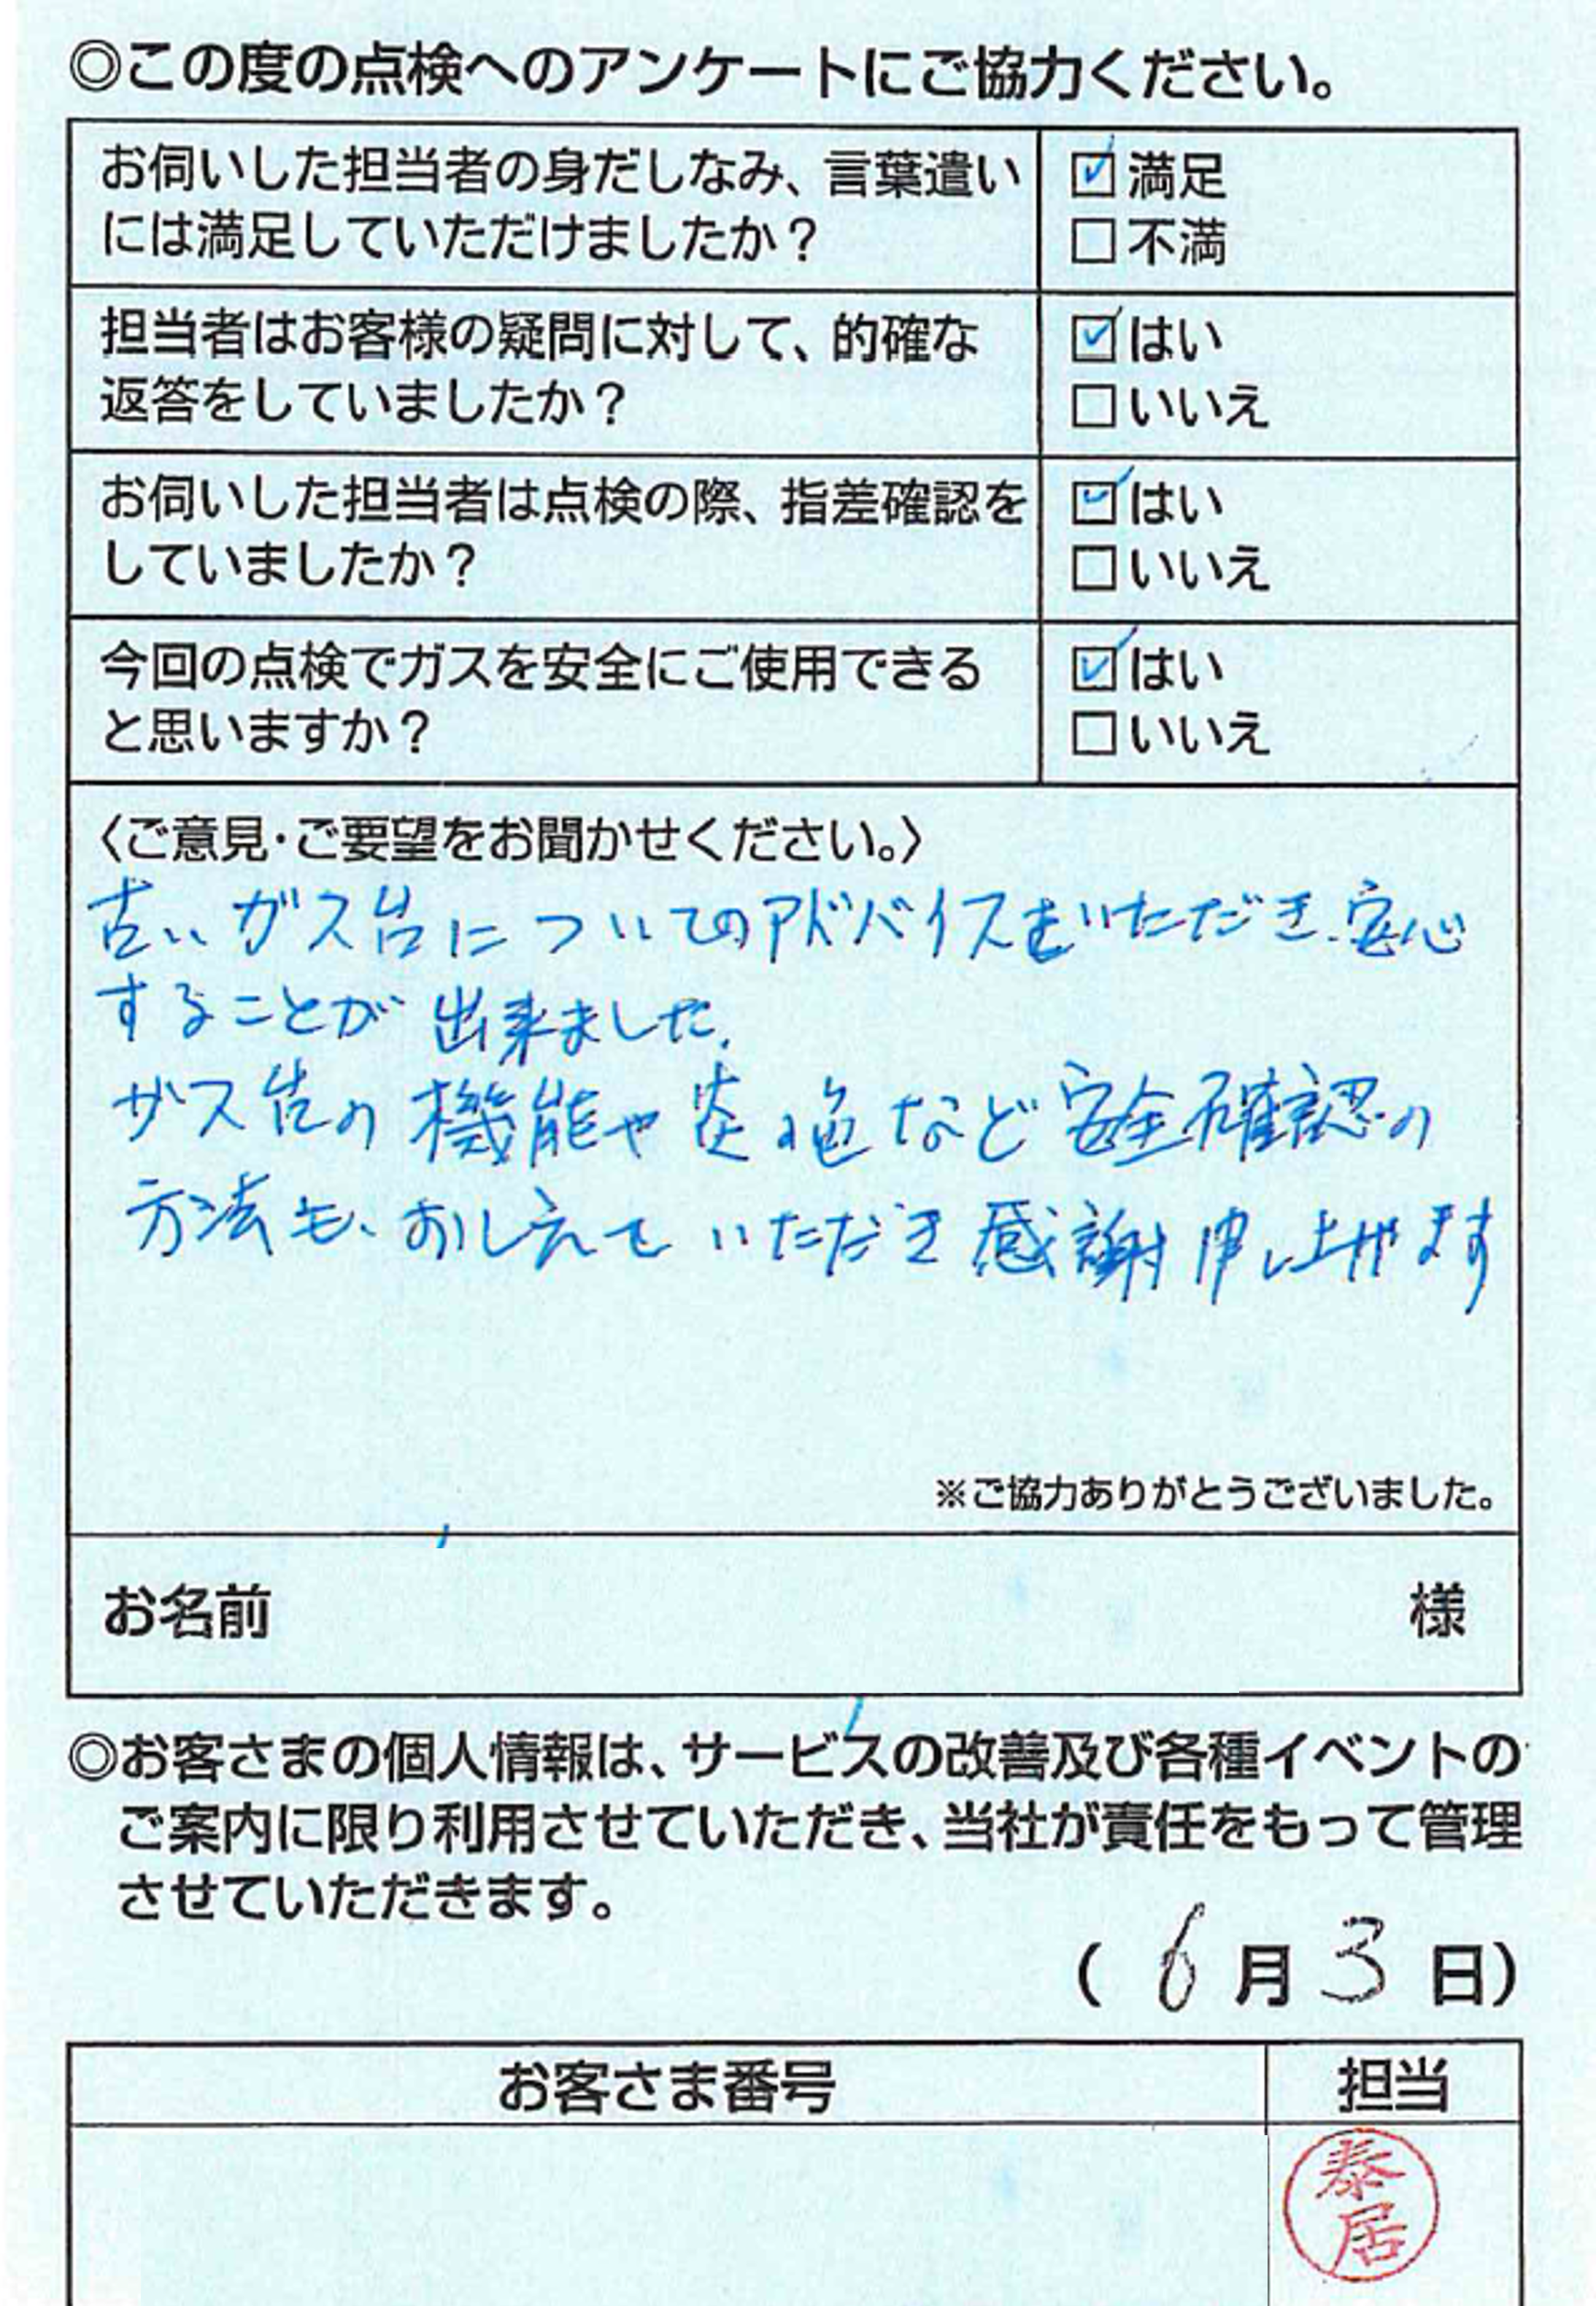 ◎この度の点検へのアンケートにご協力ください。
お伺いした担当者の身だしなみ、言葉遣い
には満足していただけましたか？
☑満足
□不満
担当者はお客様の疑問に対して、的確な
返答をしていましたか？
☑はい
□いいえ
お伺いした担当者は点検の際、指差確認を
していましたか？
☑はい
□いいえ
今回の点検でガスを安全にご使用できる
と思いますか？
☑はい
□いいえ
〈ご意見・ご要望をお聞かせください。〉
古いガス台についてのアドバイスをいただき、安心
することが出来ました。
ガス台の機能や炎の色など安全確認の
方法も、おしえていただき感謝申し上げます
※ご協力ありがとうございました。
お名前 様
◎お客さまの個人情報は、サービスの改善及び各種イベントの
ご案内に限り利用させていただき、当社が責任をもって管理
させていただきます。
（ 6月3日）
お客さま番号 担当
泰居